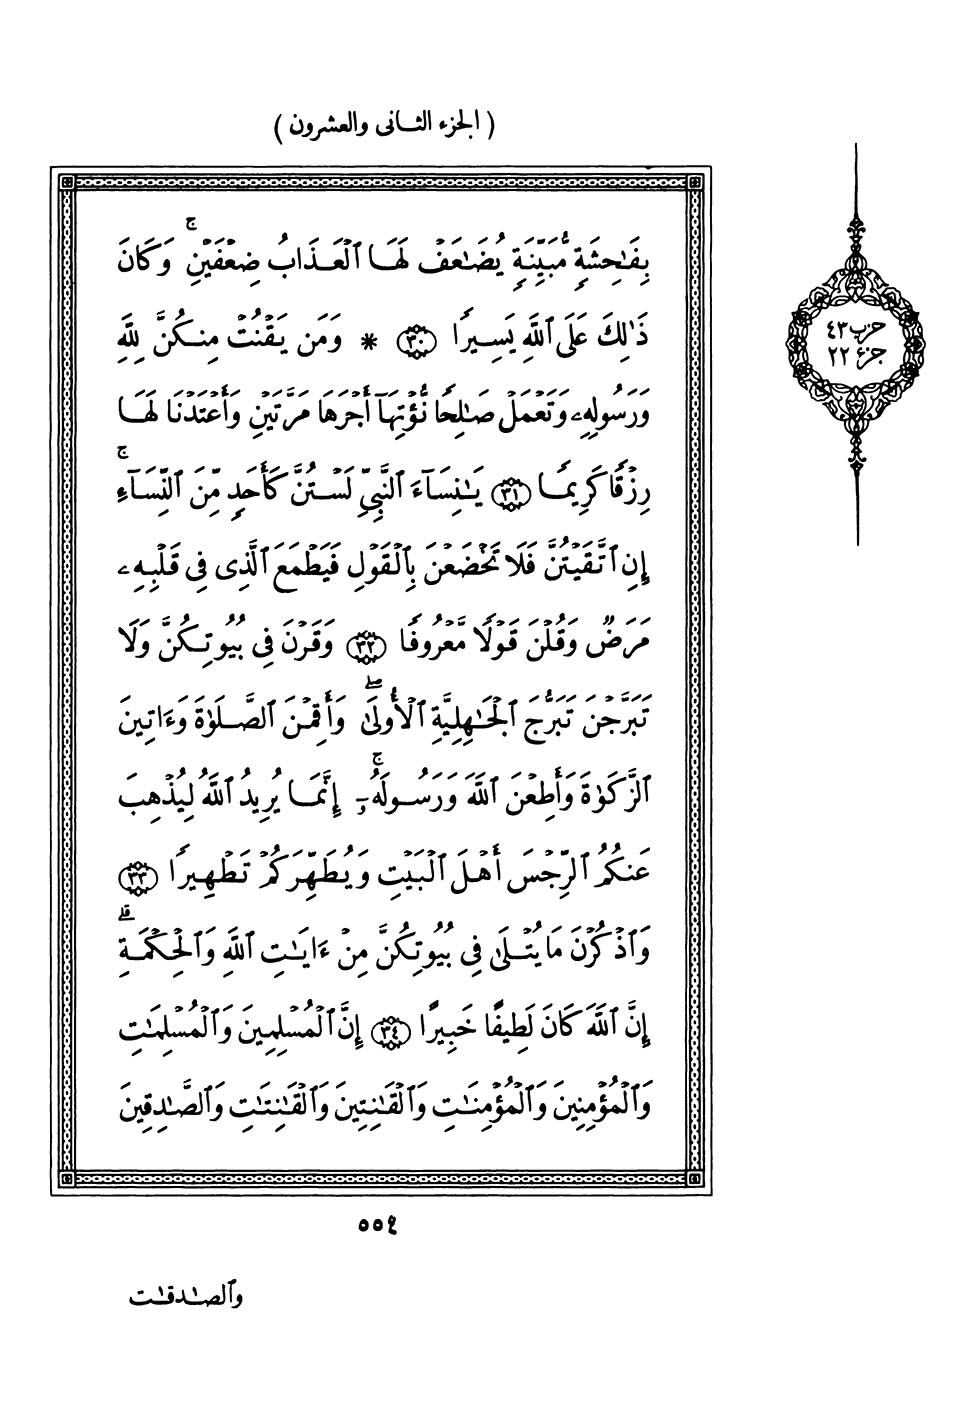 ( الجزء الثانى والعشرون )
بِفَـٰحِشَةٍ مُّبَيِّنَةٍ يُضَـٰعَفْ لَهَا ٱلْعَذَابُ ضِعْفَيْنِ ۚ وَكَانَ
ذَٰلِكَ عَلَى ٱللَّهِ يَسِيرًا ٣٠ * وَمَن يَقْنُتْ مِنكُنَّ لِلَّهِ
وَرَسُولِهِۦ وَتَعْمَلْ صَـٰلِحًا نُّؤْتِهَآ أَجْرَهَا مَرَّتَيْنِ وَأَعْتَدْنَا لَهَا
رِزْقًا كَرِيمًا ٣١ يَـٰنِسَآءَ ٱلنَّبِيِّ لَسْتُنَّ كَأَحَدٍ مِّنَ ٱلنِّسَآءِ ۚ
إِنِ ٱتَّقَيْتُنَّ فَلَا تَخْضَعْنَ بِٱلْقَوْلِ فَيَطْمَعَ ٱلَّذِى فِى قَلْبِهِۦ
مَرَضٌ وَقُلْنَ قَوْلًا مَّعْرُوفًا ٣٢ وَقَرْنَ فِى بُيُوتِكُنَّ وَلَا
تَبَرَّجْنَ تَبَرُّجَ ٱلْجَـٰهِلِيَّةِ ٱلْأُولَىٰ ۖ وَأَقِمْنَ ٱلصَّلَوٰةَ وَءَاتِينَ
ٱلزَّكَوٰةَ وَأَطِعْنَ ٱللَّهَ وَرَسُولَهُۥٓ ۚ إِنَّمَا يُرِيدُ ٱللَّهُ لِيُذْهِبَ
عَنكُمُ ٱلرِّجْسَ أَهْلَ ٱلْبَيْتِ وَيُطَهِّرَكُمْ تَطْهِيرًا ٣٣
وَٱذْكُرْنَ مَا يُتْلَىٰ فِى بُيُوتِكُنَّ مِنْ ءَايَـٰتِ ٱللَّهِ وَٱلْحِكْمَةِ ۗ
إِنَّ ٱللَّهَ كَانَ لَطِيفًا خَبِيرًا ٣٤ إِنَّ ٱلْمُسْلِمِينَ وَٱلْمُسْلِمَـٰتِ
وَٱلْمُؤْمِنِينَ وَٱلْمُؤْمِنَـٰتِ وَٱلْقَـٰنِتِينَ وَٱلْقَـٰنِتَـٰتِ وَٱلصَّـٰدِقِينَ
حزب ٤٣
جزء ٢٢
٥٥٤
وٱلصـٰدقـٰت